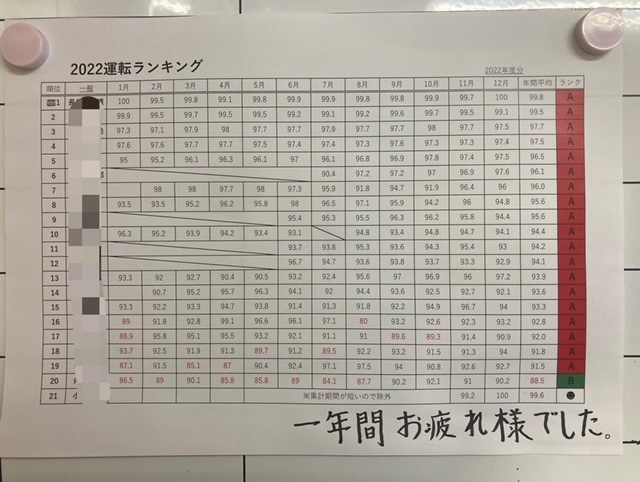 2022運転ランキング
2022年度分
順位 一般 1月 2月 3月 4月 5月 6月 7月 8月 9月 10月 11月 12月 年間平均 ランク
1 100 99.5 99.8 99.1 99.8 99.9 99.9 99.8 99.8 99.9 99.7 100 99.8 A
2 99.9 99.5 99.7 99.5 99.5 99.2 99.1 99.2 99.6 99.7 99.5 99.1 99.5 A
3 97.3 97.1 97.9 98 97.7 97.7 97.9 97.7 97.7 98 97.7 97.5 97.7 A
4 97.6 97.6 97.7 97.7 97.5 97.4 97.4 97.3 97.6 97.3 97.3 97.4 97.5 A
5 95 95.2 96.1 96.3 96.1 97 96.1 96.8 96.9 97.8 97.4 97.5 96.5 A
6 90.4 97.2 97.2 97 96.9 97.6 96.1 A
7 98 98 97.7 98 97.3 95.9 91.8 94.7 91.9 96.4 96 96.0 A
8 93.5 93.5 95.2 96.2 95.8 98 96.5 97.1 95.9 94.2 96 94.8 95.6 A
9 95.4 95.3 95.5 96.3 96.2 95.8 94.4 95.6 A
10 96.3 95.2 93.9 94.2 93.4 93.1 94.8 93.4 94.8 94.7 94.1 94.4 A
11 93.7 93.8 95.3 94.6 94.3 95.4 93 94.2 A
12 96.7 94.7 93.8 93.7 93.3 92.9 94.1 A
13 93.3 92 92.7 90.4 90.5 93.2 92.4 95.6 97 96.9 96 97.2 93.9 A
14 90.7 95.2 95.7 96.3 94.1 92 94.4 93.6 92.5 92.7 92.1 93.6 A
15 93.3 92.2 93.3 94.7 93.8 91.4 91.3 91.8 92.2 94.9 96.7 94 93.3 A
16 89 91.8 92.8 99.1 96.6 96.1 97.1 80 93.2 92.6 92.3 93.2 92.8 A
17 88.9 95.8 95.1 95.5 93.2 92.7 91.1 91 89.6 89.3 91.4 90.9 92.0 A
18 93.7 92.5 91.9 91.3 89.7 91.2 89.5 92.2 93.2 91.5 91.3 94 91.8 A
19 87.1 91.5 85.1 87 90.4 92.4 97.1 97.5 94 90.8 92.6 92.7 91.5 A
20 86.5 89 90.1 85.8 85.8 89 84.1 87.7 90.2 92.1 91 90.2 88.5 B
21 小 ※集計期間が短いので除外 99.2 100 99.6
一年間 お疲れ様でした。